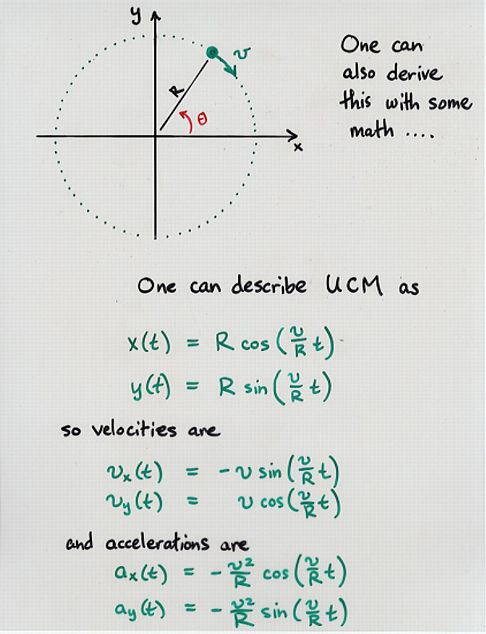 y
v
R
θ
x
One can
also derive
this with some
math ....
One can describe UCM as
x(t) = R cos(v/R t)
y(t) = R sin(v/R t)
so velocities are
vx(t) = -v sin(v/R t)
vy(t) = v cos(v/R t)
and accelerations are
ax(t) = -v²/R cos(v/R t)
ay(t) = -v²/R sin(v/R t)